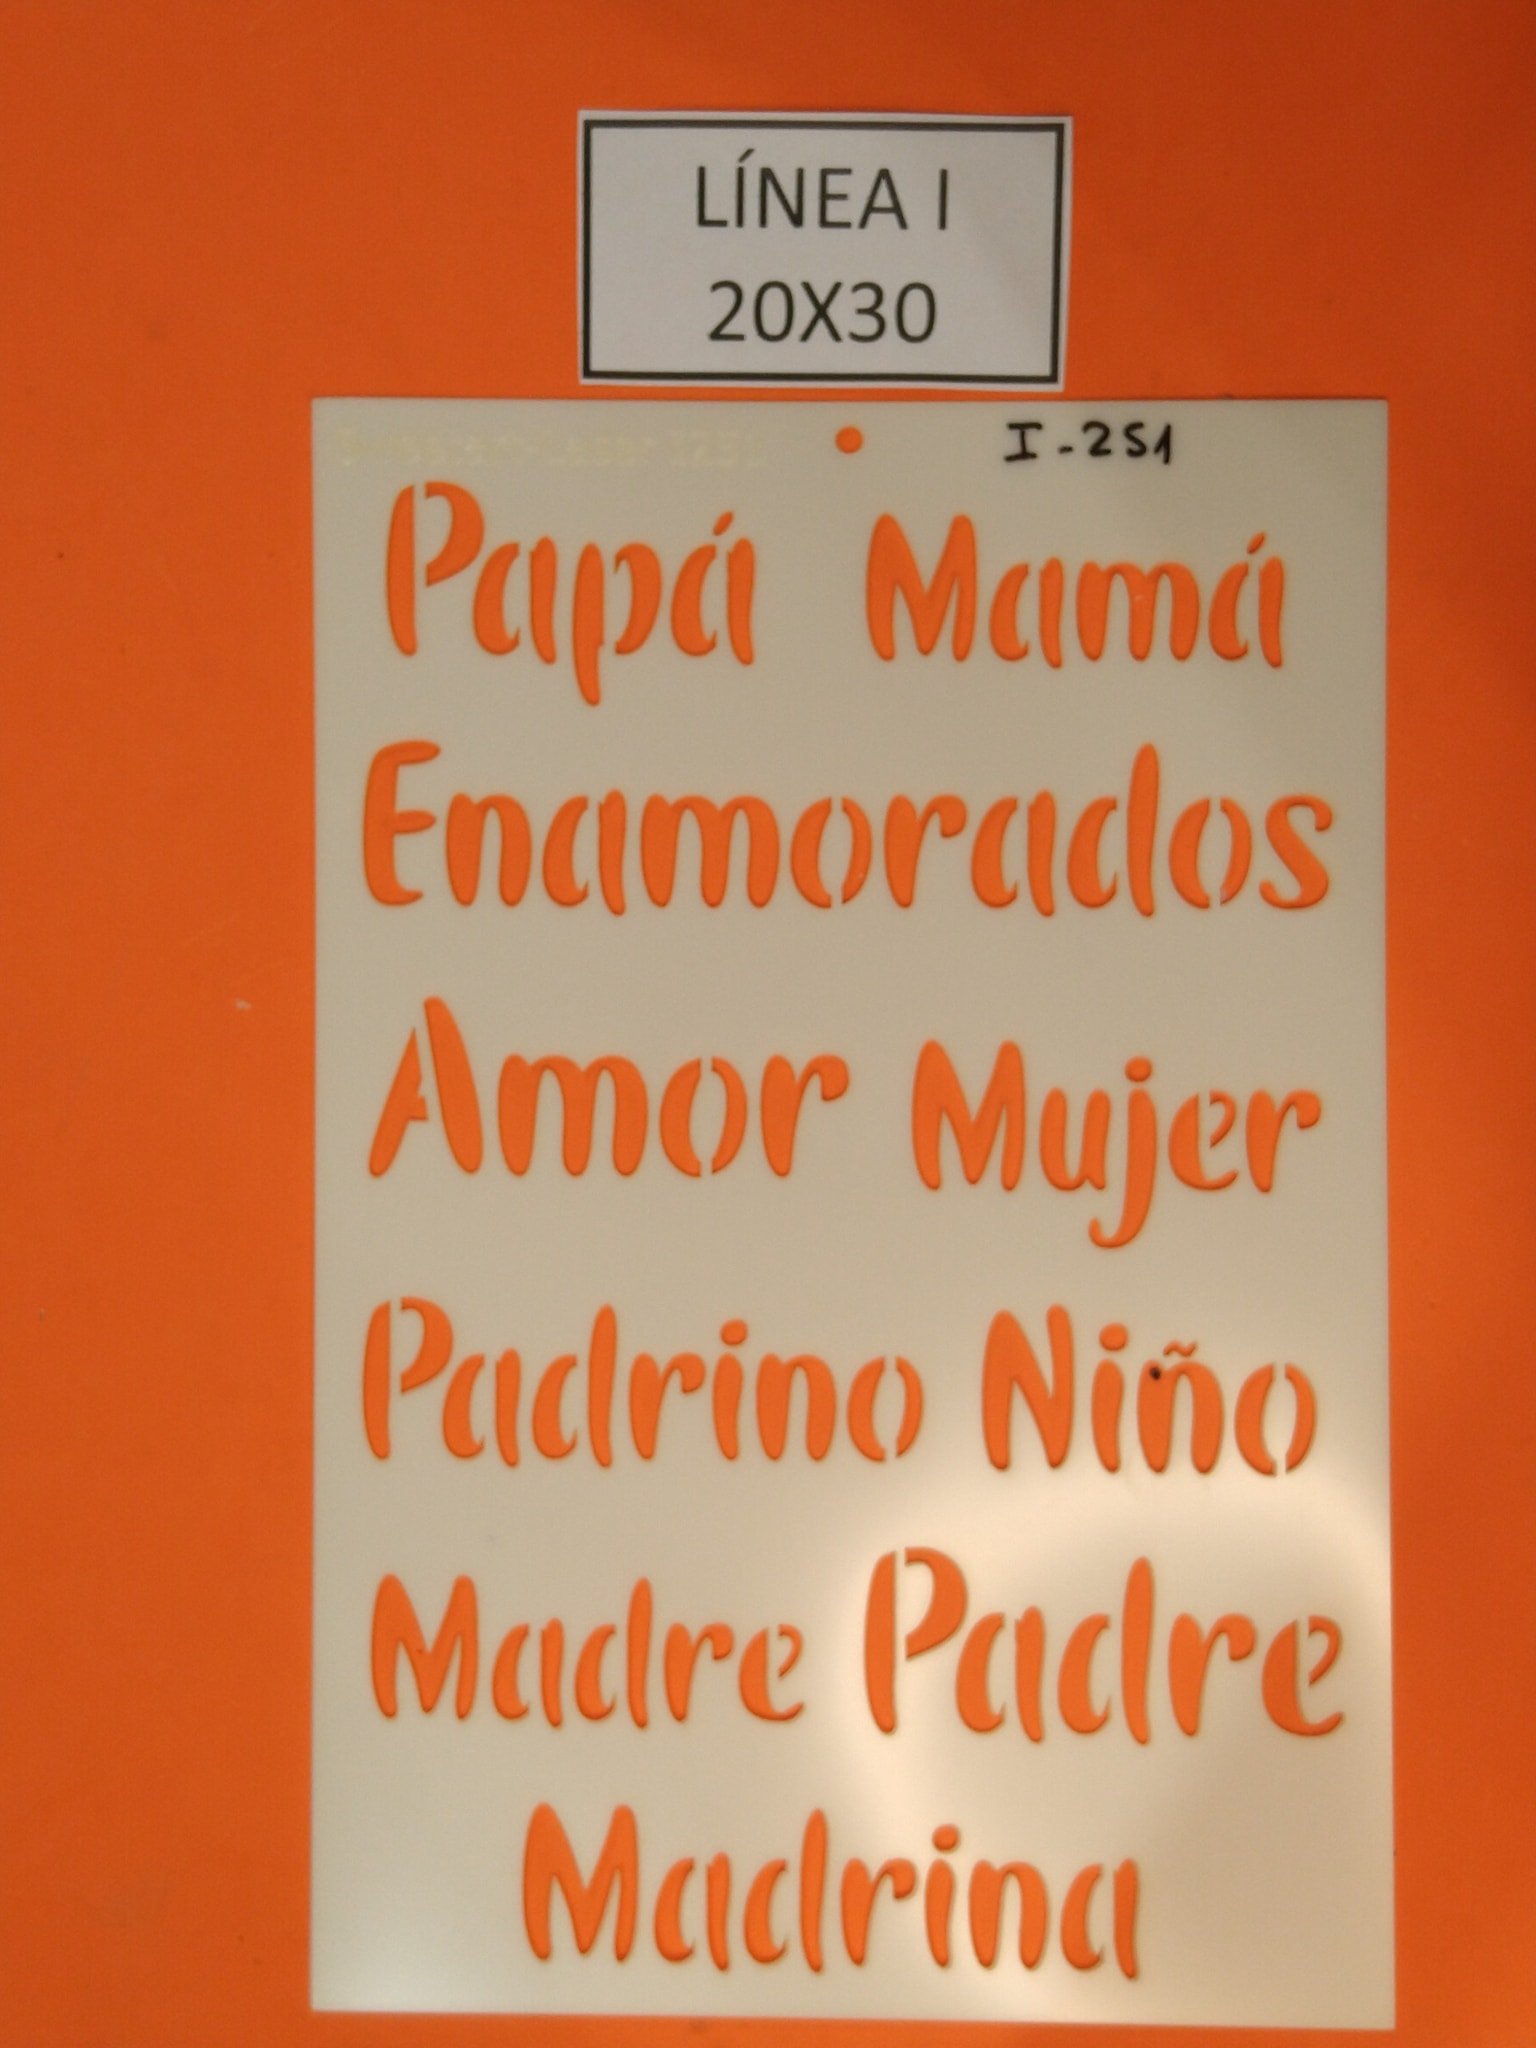 LÍNEA I
20X30
I-251
Papá Mamá
Enamorados
Amor Mujer
Padrino Niño
Madre Padre
Madrina